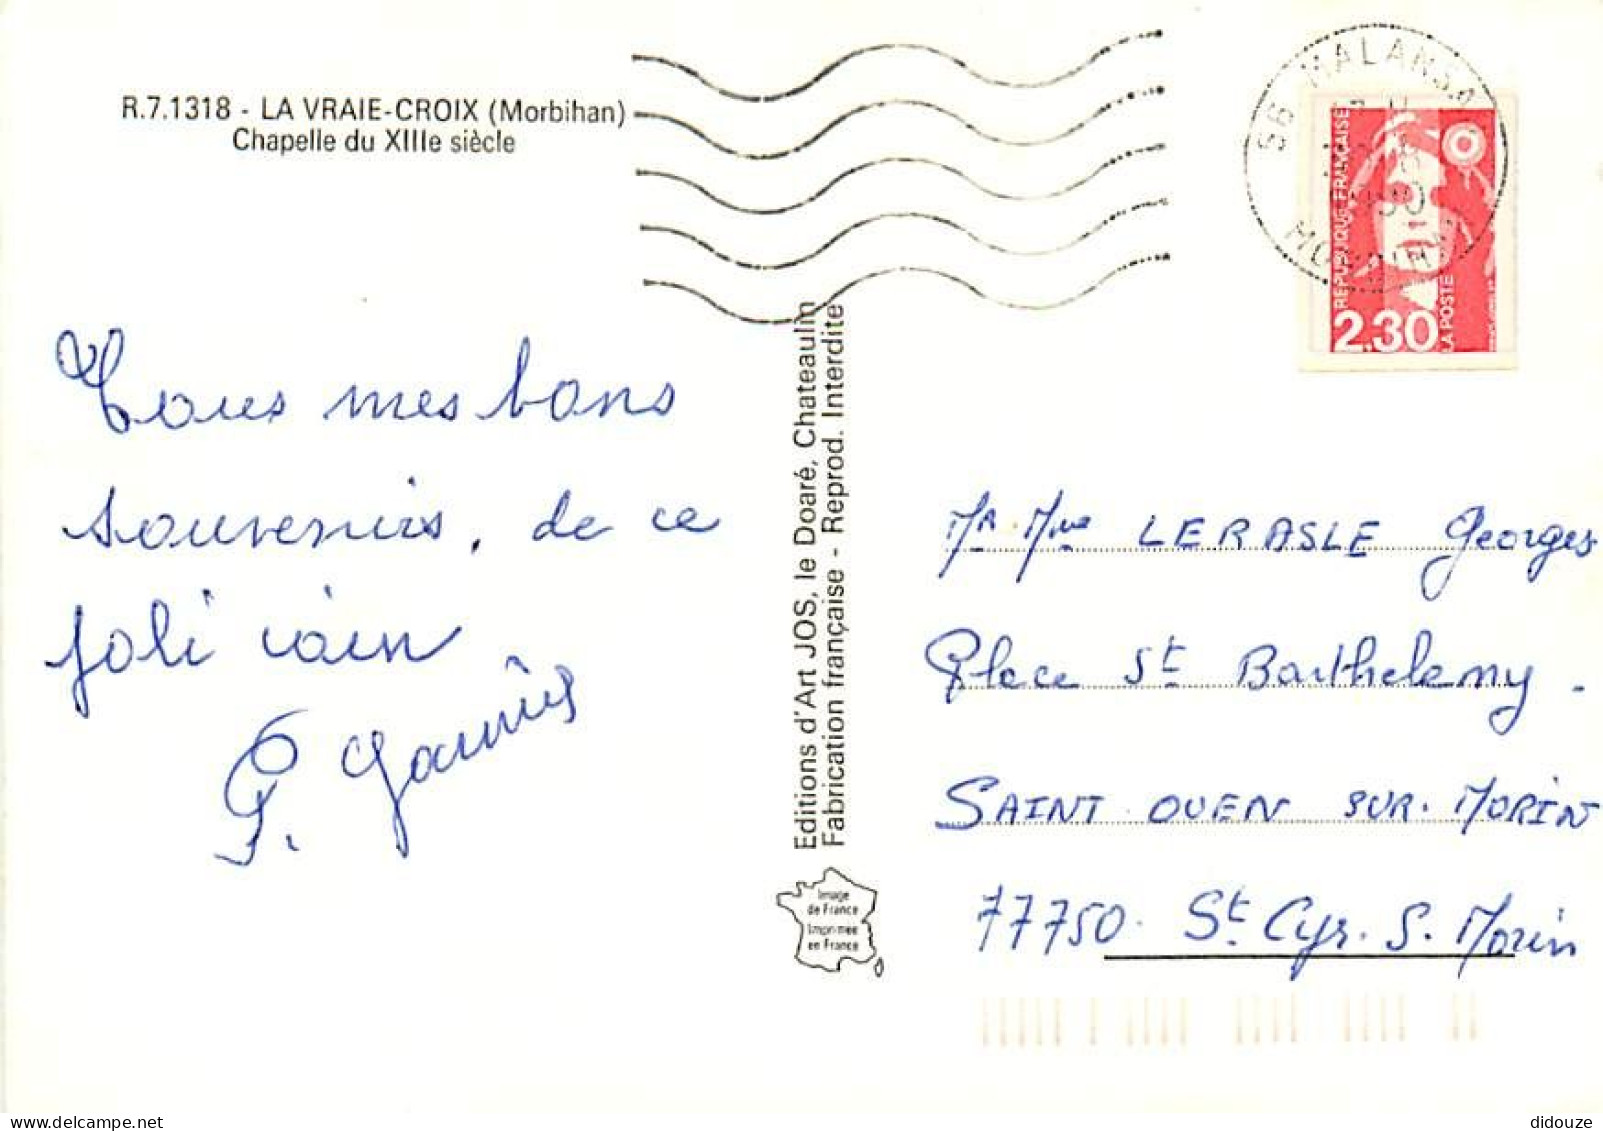 R.7.1318 - LA VRAIE-CROIX (Morbihan)
Chapelle du XIIIe siècle
Tous mes bons
souvenirs, de ce
joli coin
Editions d'Art JOS, le Doaré, Chateaulin
Fabrication française - Reprod. Interdite
Image
de France
Imprimée
en France
56 MALANSA
MORBIHAN
REPUBLIQUE FRANÇAISE
2,30
LA POSTE
Mr Mme LERASLE Georges
Place St Barthelemy.
SAINT OUEN SUR. MORIN
77750. St Cyr. S. Morin
didouze